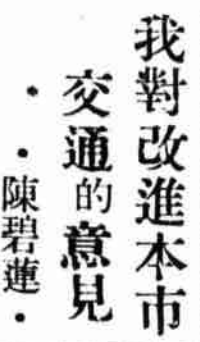 我對改進本市
交通的意見
·陳碧蓮·